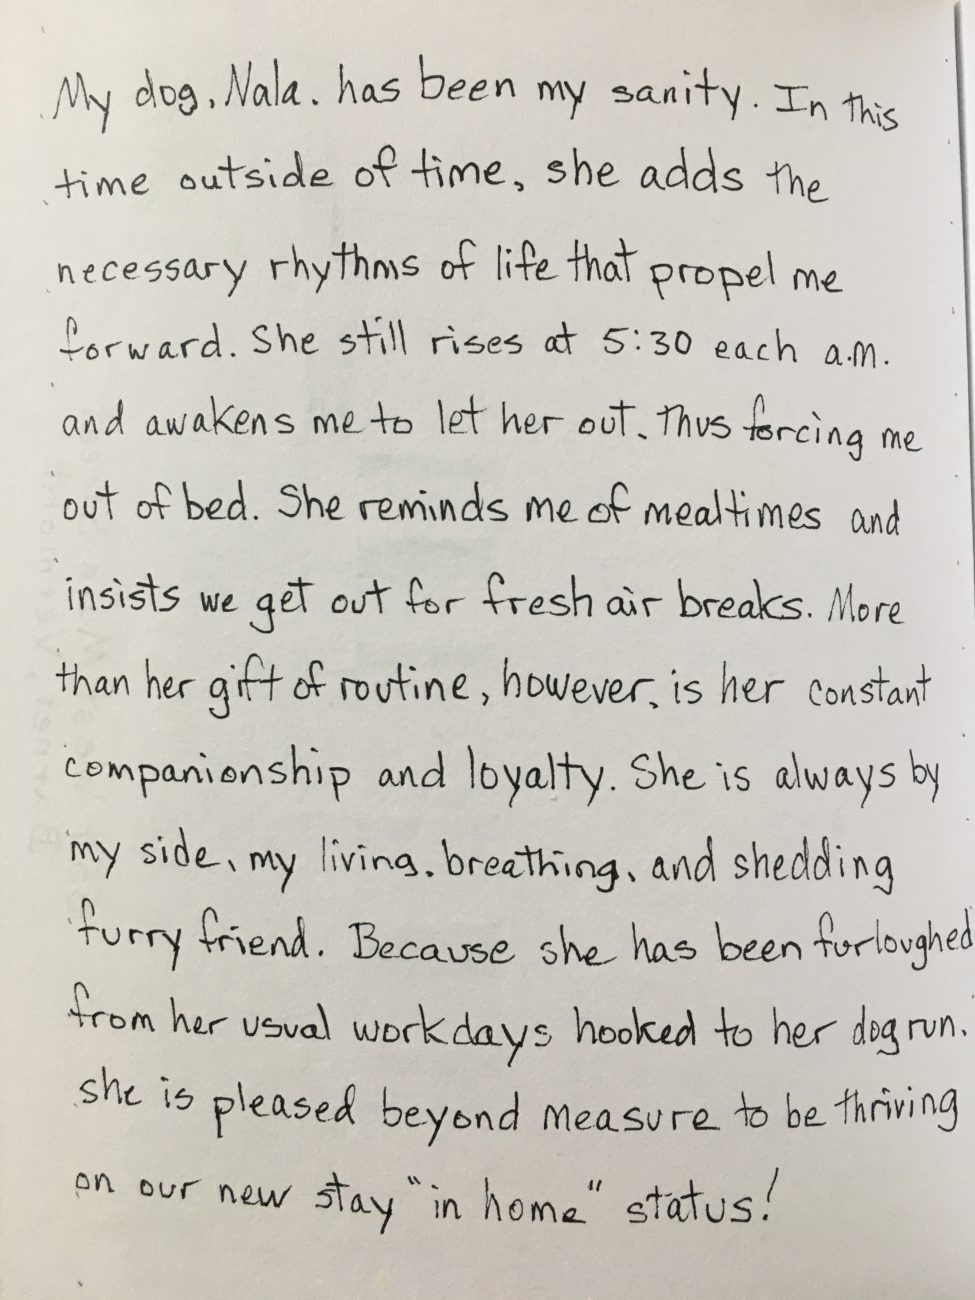 My dog, Nala, has been my sanity. In this
time outside of time, she adds the
necessary rhythms of life that propel me
forward. She still rises at 5:30 each a.m.
and awakens me to let her out, thus forcing me
out of bed. She reminds me of mealtimes and
insists we get out for fresh air breaks. More
than her gift of routine, however, is her constant
companionship and loyalty. She is always by
my side, my living, breathing, and shedding
furry friend. Because she has been furloughed
from her usual workdays hooked to her dog run,
she is pleased beyond measure to be thriving
on our new stay "in home" status!